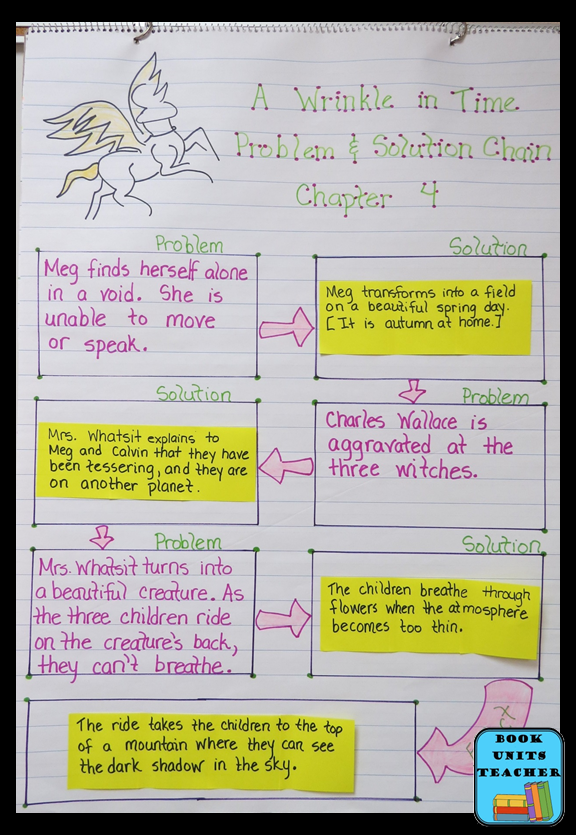 A Wrinkle in Time
Problem & Solution Chain
Chapter 4
Problem
Meg finds herself alone
in a void. She is
unable to move
or speak.
Solution
Meg transforms into a field
on a beautiful spring day.
[It is autumn at home.]
Problem
Charles Wallace is
aggravated at the
three witches.
Solution
Mrs. Whatsit explains to
Meg and Calvin that they have
been tessering, and they are
on another planet.
Problem
Mrs. Whatsit turns into
a beautiful creature. As
the three children ride
on the creature's back,
they can't breathe.
Solution
The children breathe through
flowers when the atmosphere
becomes too thin.
The ride takes the children to the top
of a mountain where they can see
the dark shadow in the sky.
BOOK
UNITS
TEACHER